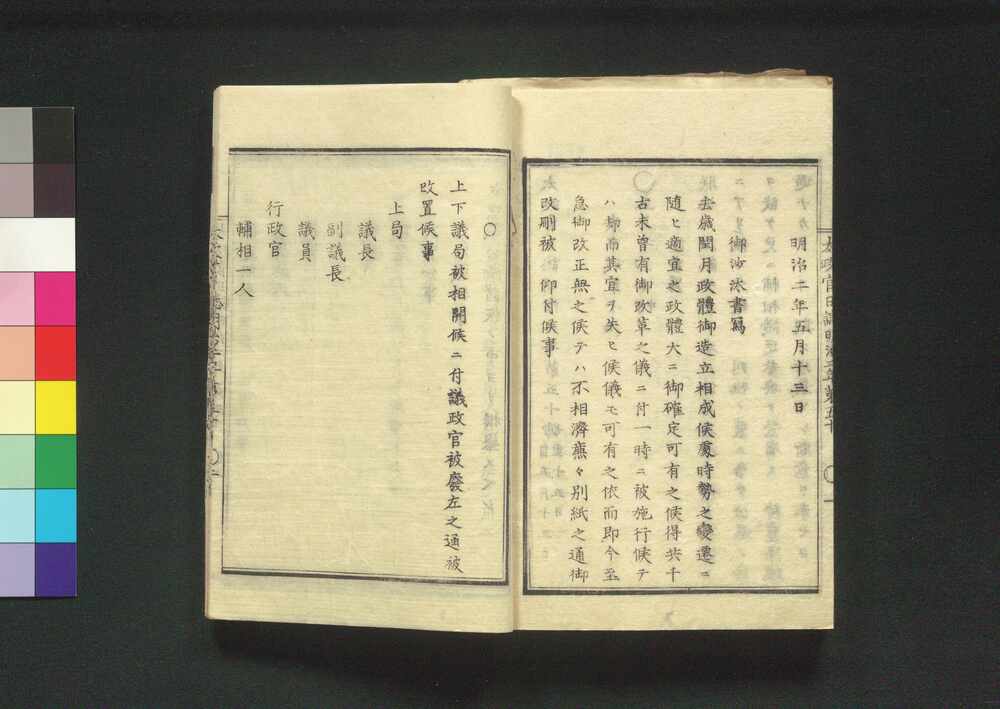 明治二年五月十三日
御沙汰書寫
去歳閏月政體御造立相成候處時勢之變遷ニ
随ヒ適宜之政體大ニ御確定可有之候得共千
古未曽有御改革之儀ニ付一時ニ被施行候テ
ハ却而其宜ヲ失ヒ候儀モ可有之依而即今至
急御改正無之候テハ不相濟燕々別紙之通御
改刪被仰付候事
○
上下議局被相開候ニ付議政官被廢左之通被
改置候事
上局
議長
副議長
議員
行政官
輔相一人